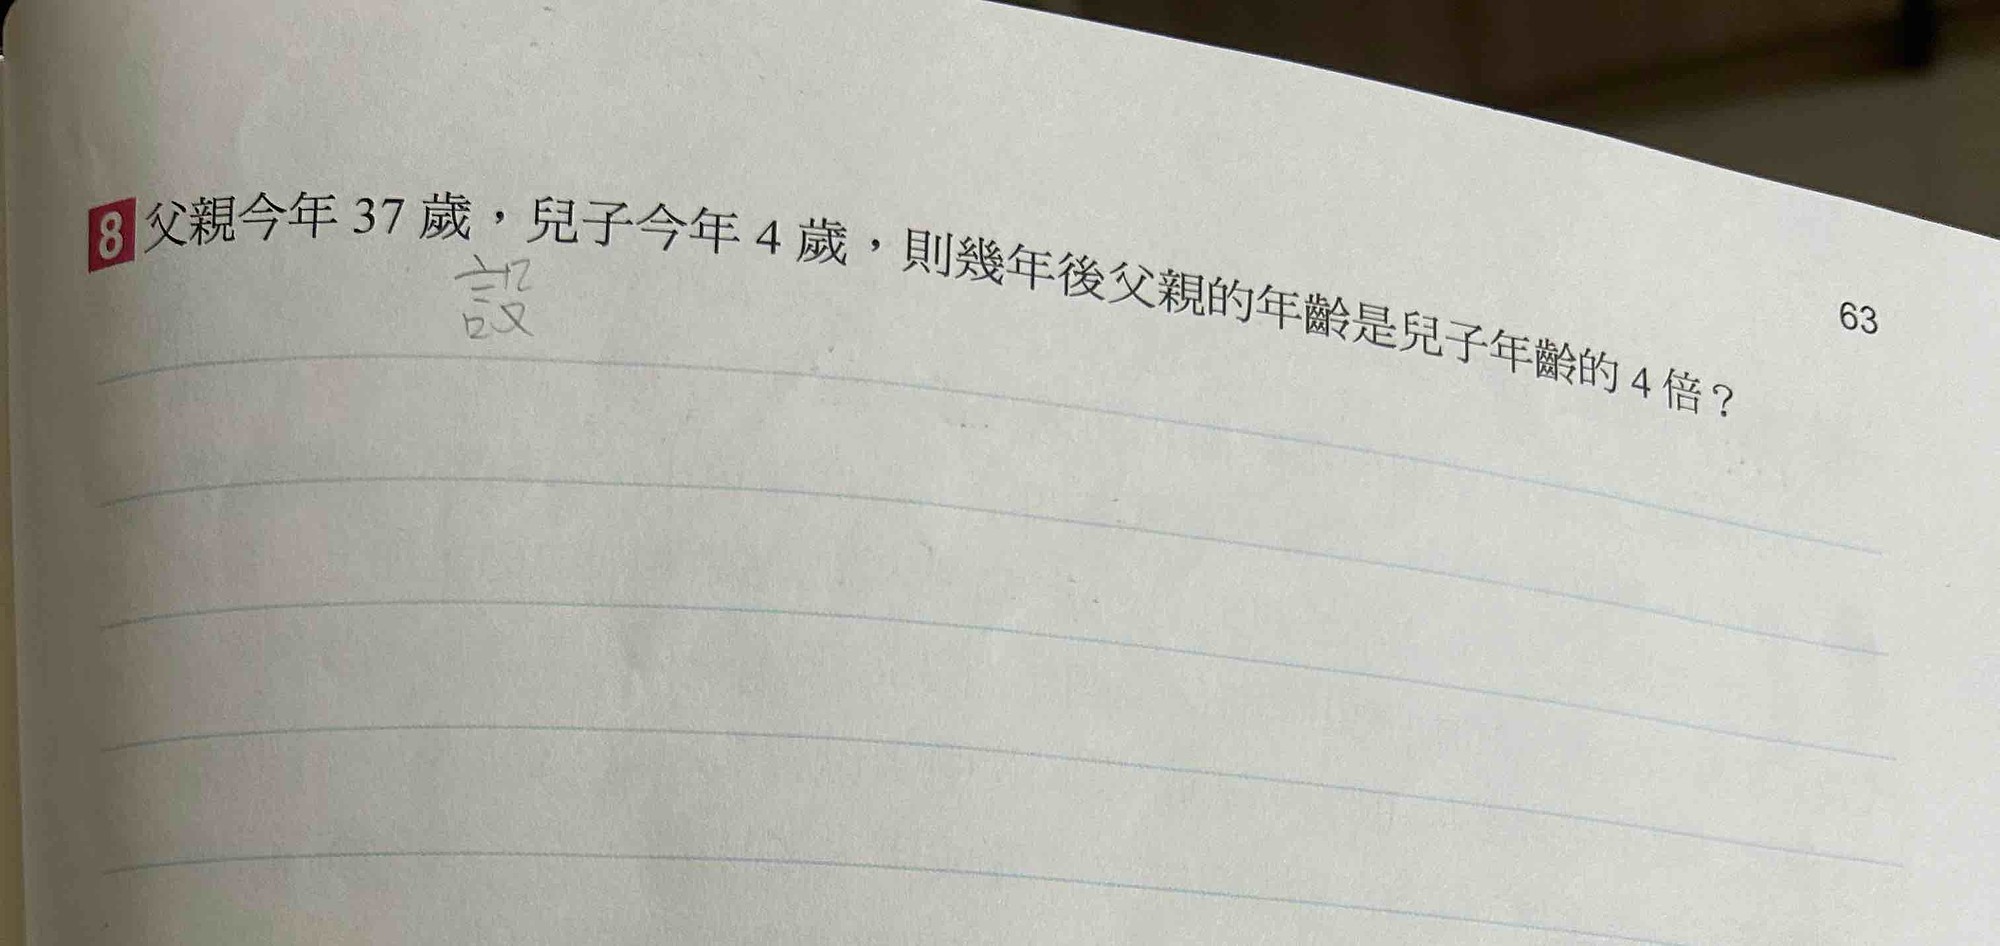 8 父親今年 37 歲，兒子今年 4 歲，則幾年後父親的年齡是兒子年齡的 4 倍？
設
63